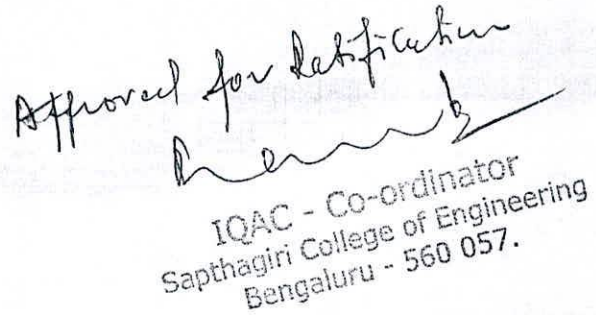 Approved for Ratification
IQAC - Co-ordinator
Sapthagiri College of Engineering
Bengaluru - 560 057.